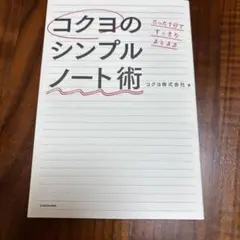 コクヨの
シンプル
ノート術
たった1分で
すっきり
まとまる
コクヨ株式会社 著
KADOKAWA